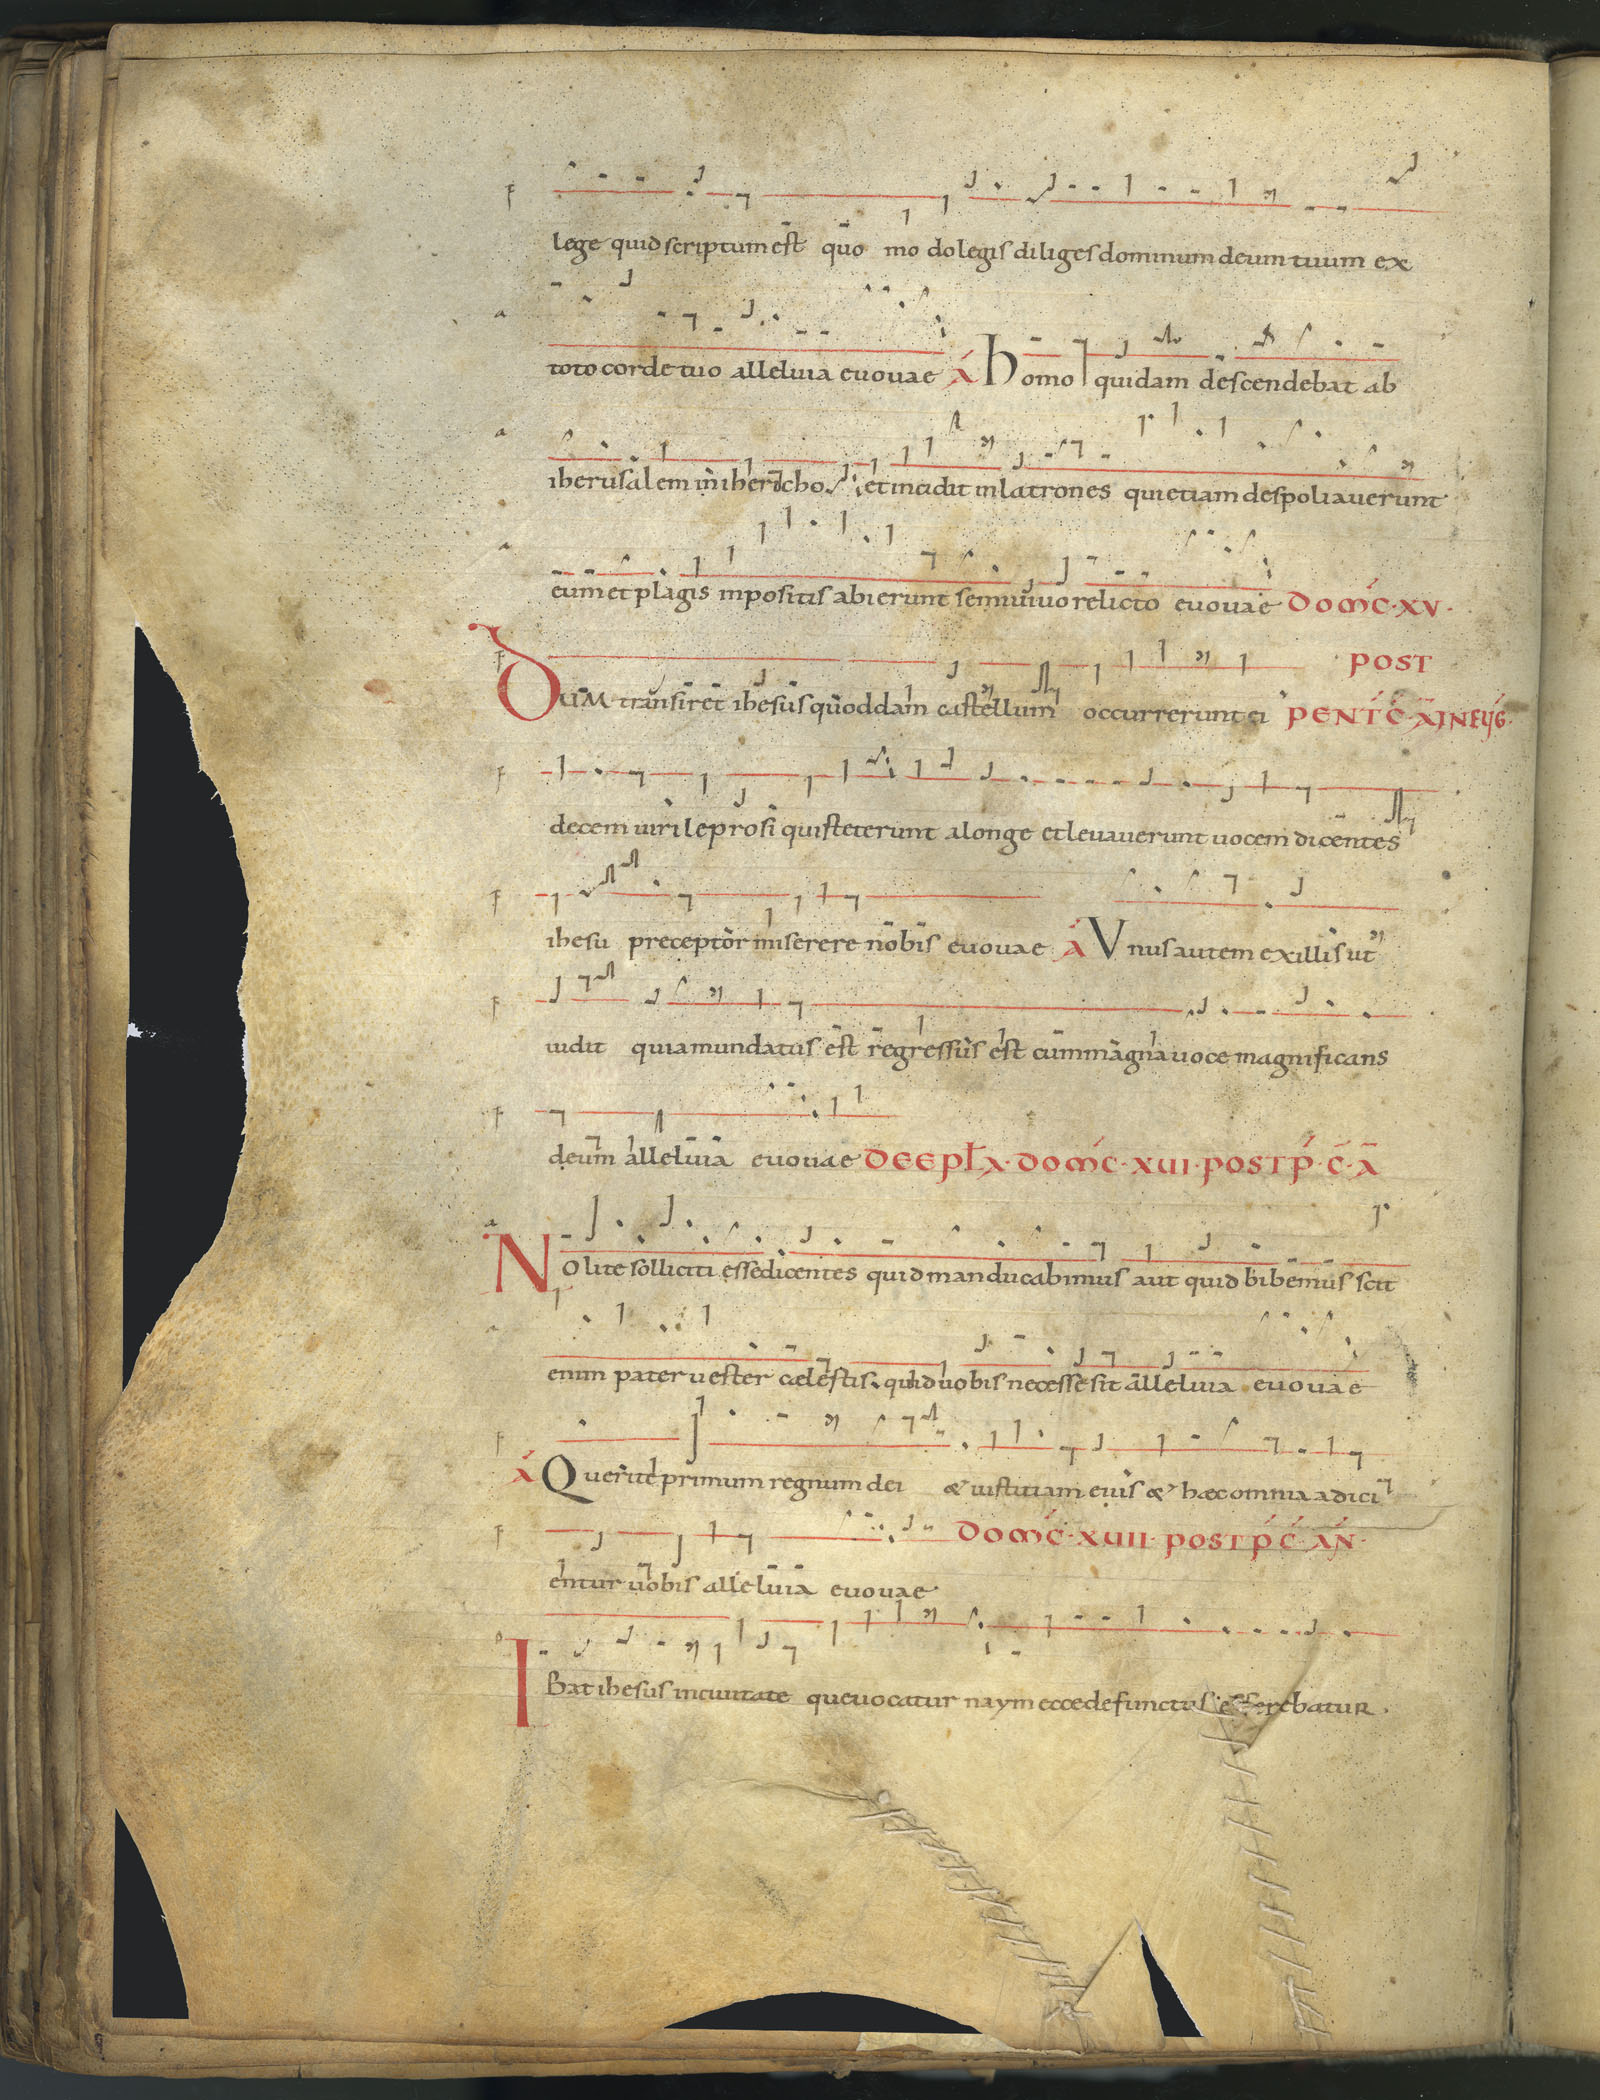 lege quid scriptum est̄ quo̅ mo do legis diliges dominum deum tuum ex
toto corde tuo alleluia euouae A Homo quidam descendebat ab
iherusalem in ihericho et incidit in latrones qui etiam despoliauerunt
eum et plagis inpositis abierunt semiuiuo relicto euouae DOMC·XV·
DUM transiret ihesus quoddam castellum occurrerunt ei POST PENTC·A IN EUG·
decem uiri leprosi qui steterunt alonge et leuauerunt uocem dicentes
ihesu preceptor miserere nobis euouae A Vnus autem ex illis ut
uidit quia mundatus est regressus est cum magna uoce magnificans
deum alleluia euouae DEEPLA·DOMC·XVI·POST P·C·A
Nolite solliciti esse dicentes quid manducabimus aut quid bibemus scit
enim pater uester cælestis quid uobis necesse sit alleluia euouae
A Querite primum regnum dei & iustitiam eius & hæc omnia adici
entur uobis alleluia euouae DOMC·XVII·POST P·C·AN·
IBat ihesus inciuitate que uocatur naym ecce defunctus efferebatur.